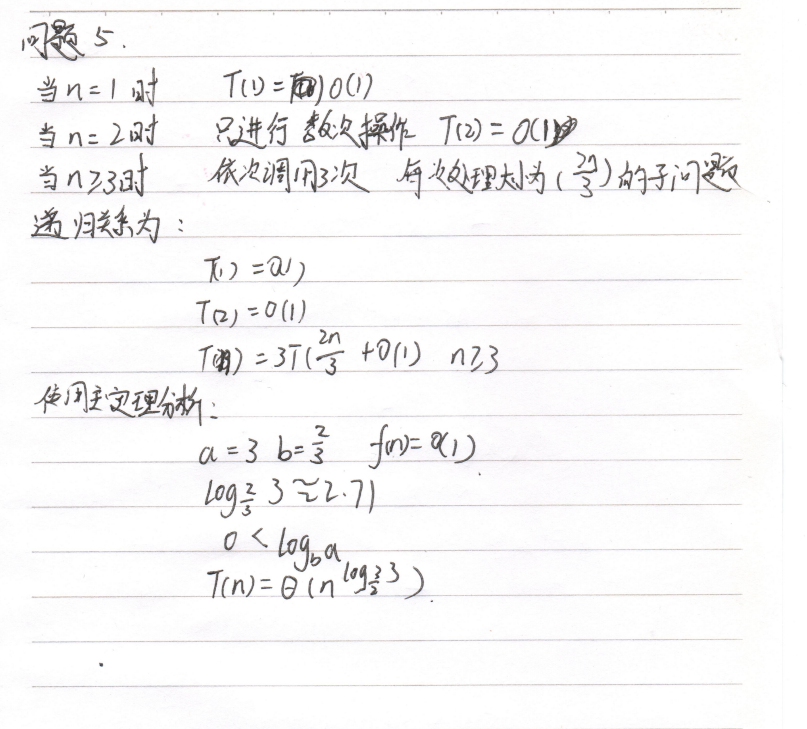 问题 5.
当 n = 1 时 T(1) = O(1)
当 n = 2时 只进行 数次操作 T(2) = O(1)
当 n≥3时 依次调用3次 每次处理大小为 (2n/3) 的子问题
递归关系为:
T(1) = O(1)
T(2) = O(1)
T(n) = 3T(2n/3 + O(1) n≥3
使用主定理分析:
a = 3 b = 2/3 f(n) = O(1)
log_{2/3} 3 ≈ 2.71
0 < log_b a
T(n) = θ(n^{log_{3/2} 3})